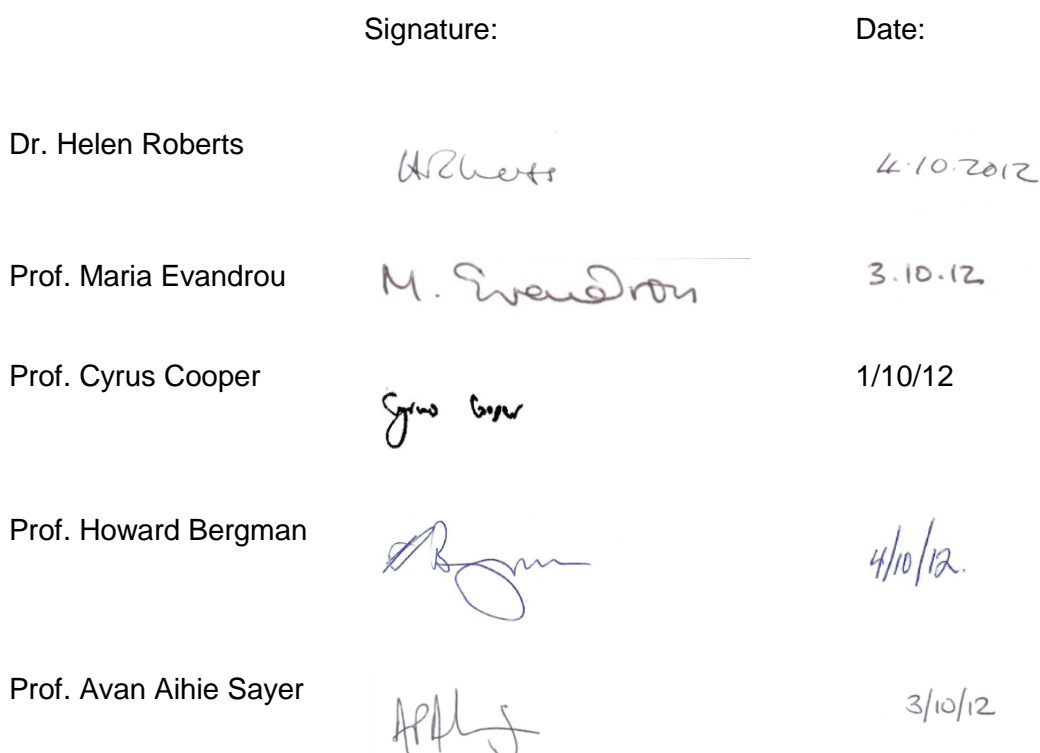 Signature: Date:
Dr. Helen Roberts 4.10.2012
Prof. Maria Evandrou M. Evandrou 3.10.12
Prof. Cyrus Cooper Cyrus Cooper 1/10/12
Prof. Howard Bergman 4/10/12.
Prof. Avan Aihie Sayer 3/10/12